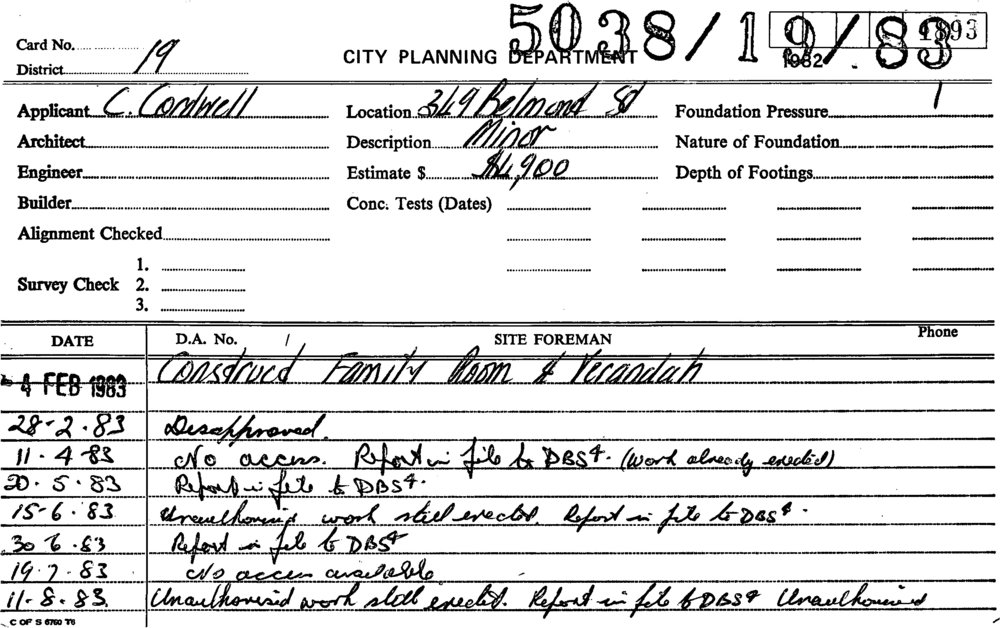 5038/19/83
1893
1982
Card No. 19
District
CITY PLANNING DEPARTMENT
Applicant C. Cordwell Location 349 Belmond St Foundation Pressure
Architect Description Minor Nature of Foundation
Engineer Estimate $ $4,900 Depth of Footings
Builder Conc. Tests (Dates)
Alignment Checked
Survey Check 1.
2.
3.
DATE D.A. No. SITE FOREMAN Phone
4 FEB 1983 Construct Family Room & Verandah
28-2.83 Disapproved.
11.4 83 No access. Report in file to DBS4. (work already erected)
20.5.83 Report in file to DBS4.
15-6.83 Unauthorised work still erected. Report in file to DBS4.
30 6.83 Report in file to DBS4
19.7.83 No access available
11-8.83. Unauthorised work still erected. Report in file to DBS4 Unauthorised
C OF S 6760 T6